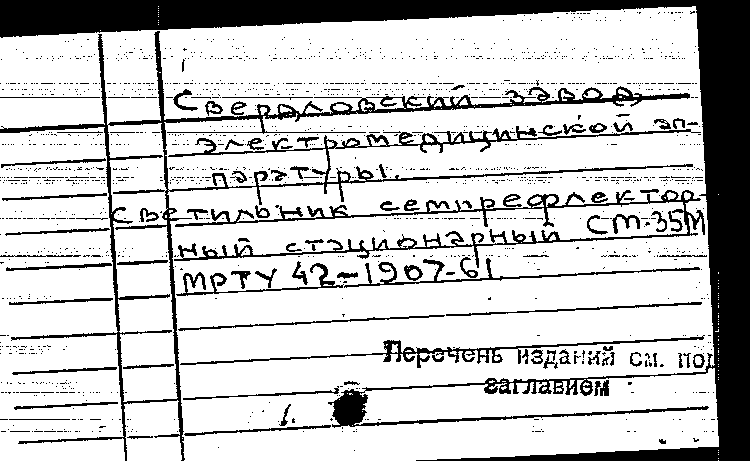 Свердловский завод
электромедицинской ап-
паратуры.
Светильник семирефлектор-
ный стационарный СМ-35М
МРТУ 42-1907-61.
Перечень изданий см. под
заглавием
1.